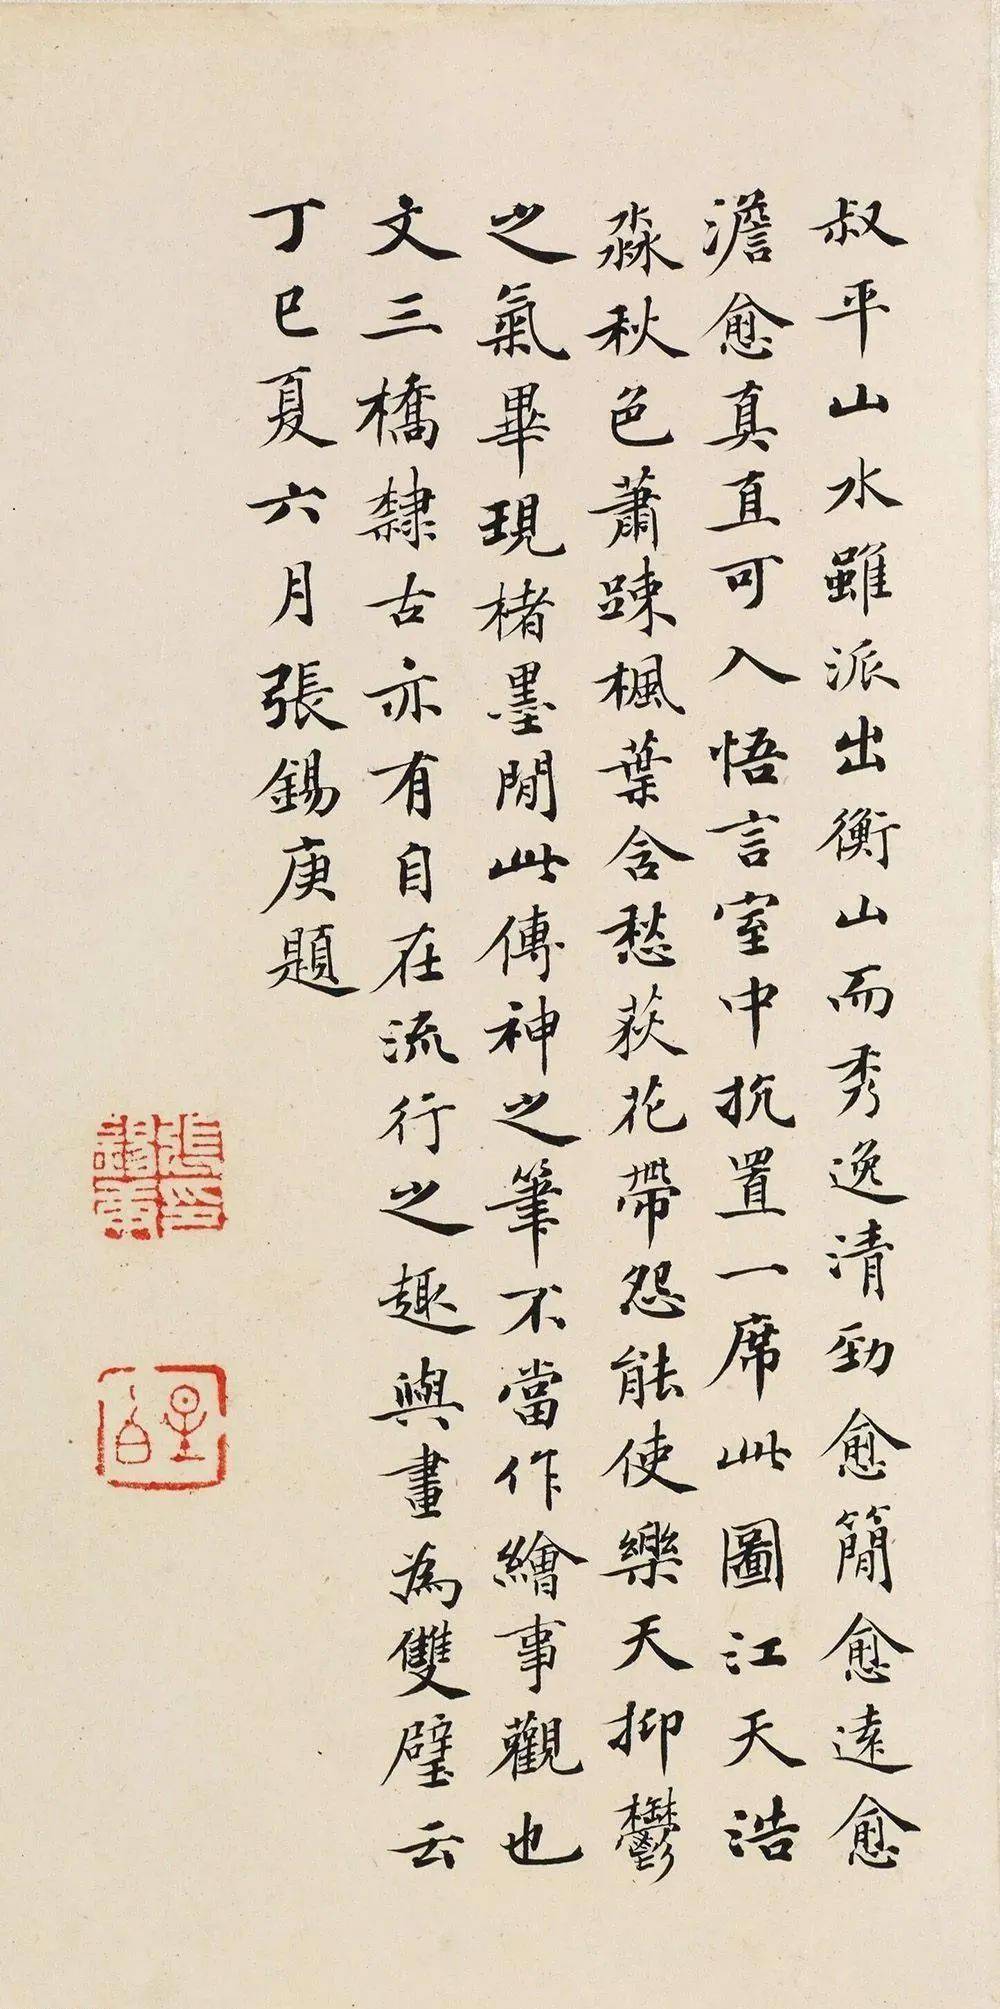 叔平山水雖派出衡山而秀逸清勁愈簡愈遠愈
澹愈真直可入悟言室中抗置一席此圖江天浩
淼秋色蕭踈楓葉含愁荻花帶怨能使樂天抑鬱
之氣畢現楮墨閒此傳神之筆不當作繪事觀也
文三橋隸古亦有自在流行之趣與畫為雙璧云
丁巳夏六月張錫庚題
張錫庚印
星白